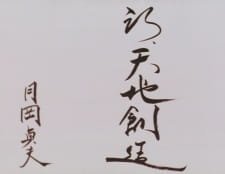 新、天地創造
月岡貞夫